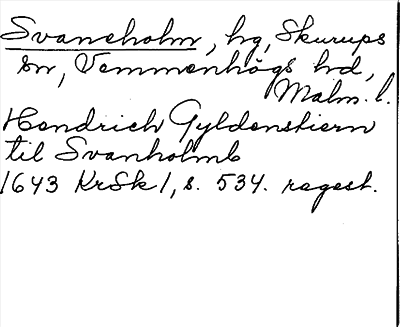 Svaneholm, hg, Skurups
sn, Vemmenhögs hd,
Malm. l.
Hendrich Gyldenstiern
til Svanholmb
1643 KrSk 1, s. 534. regest.